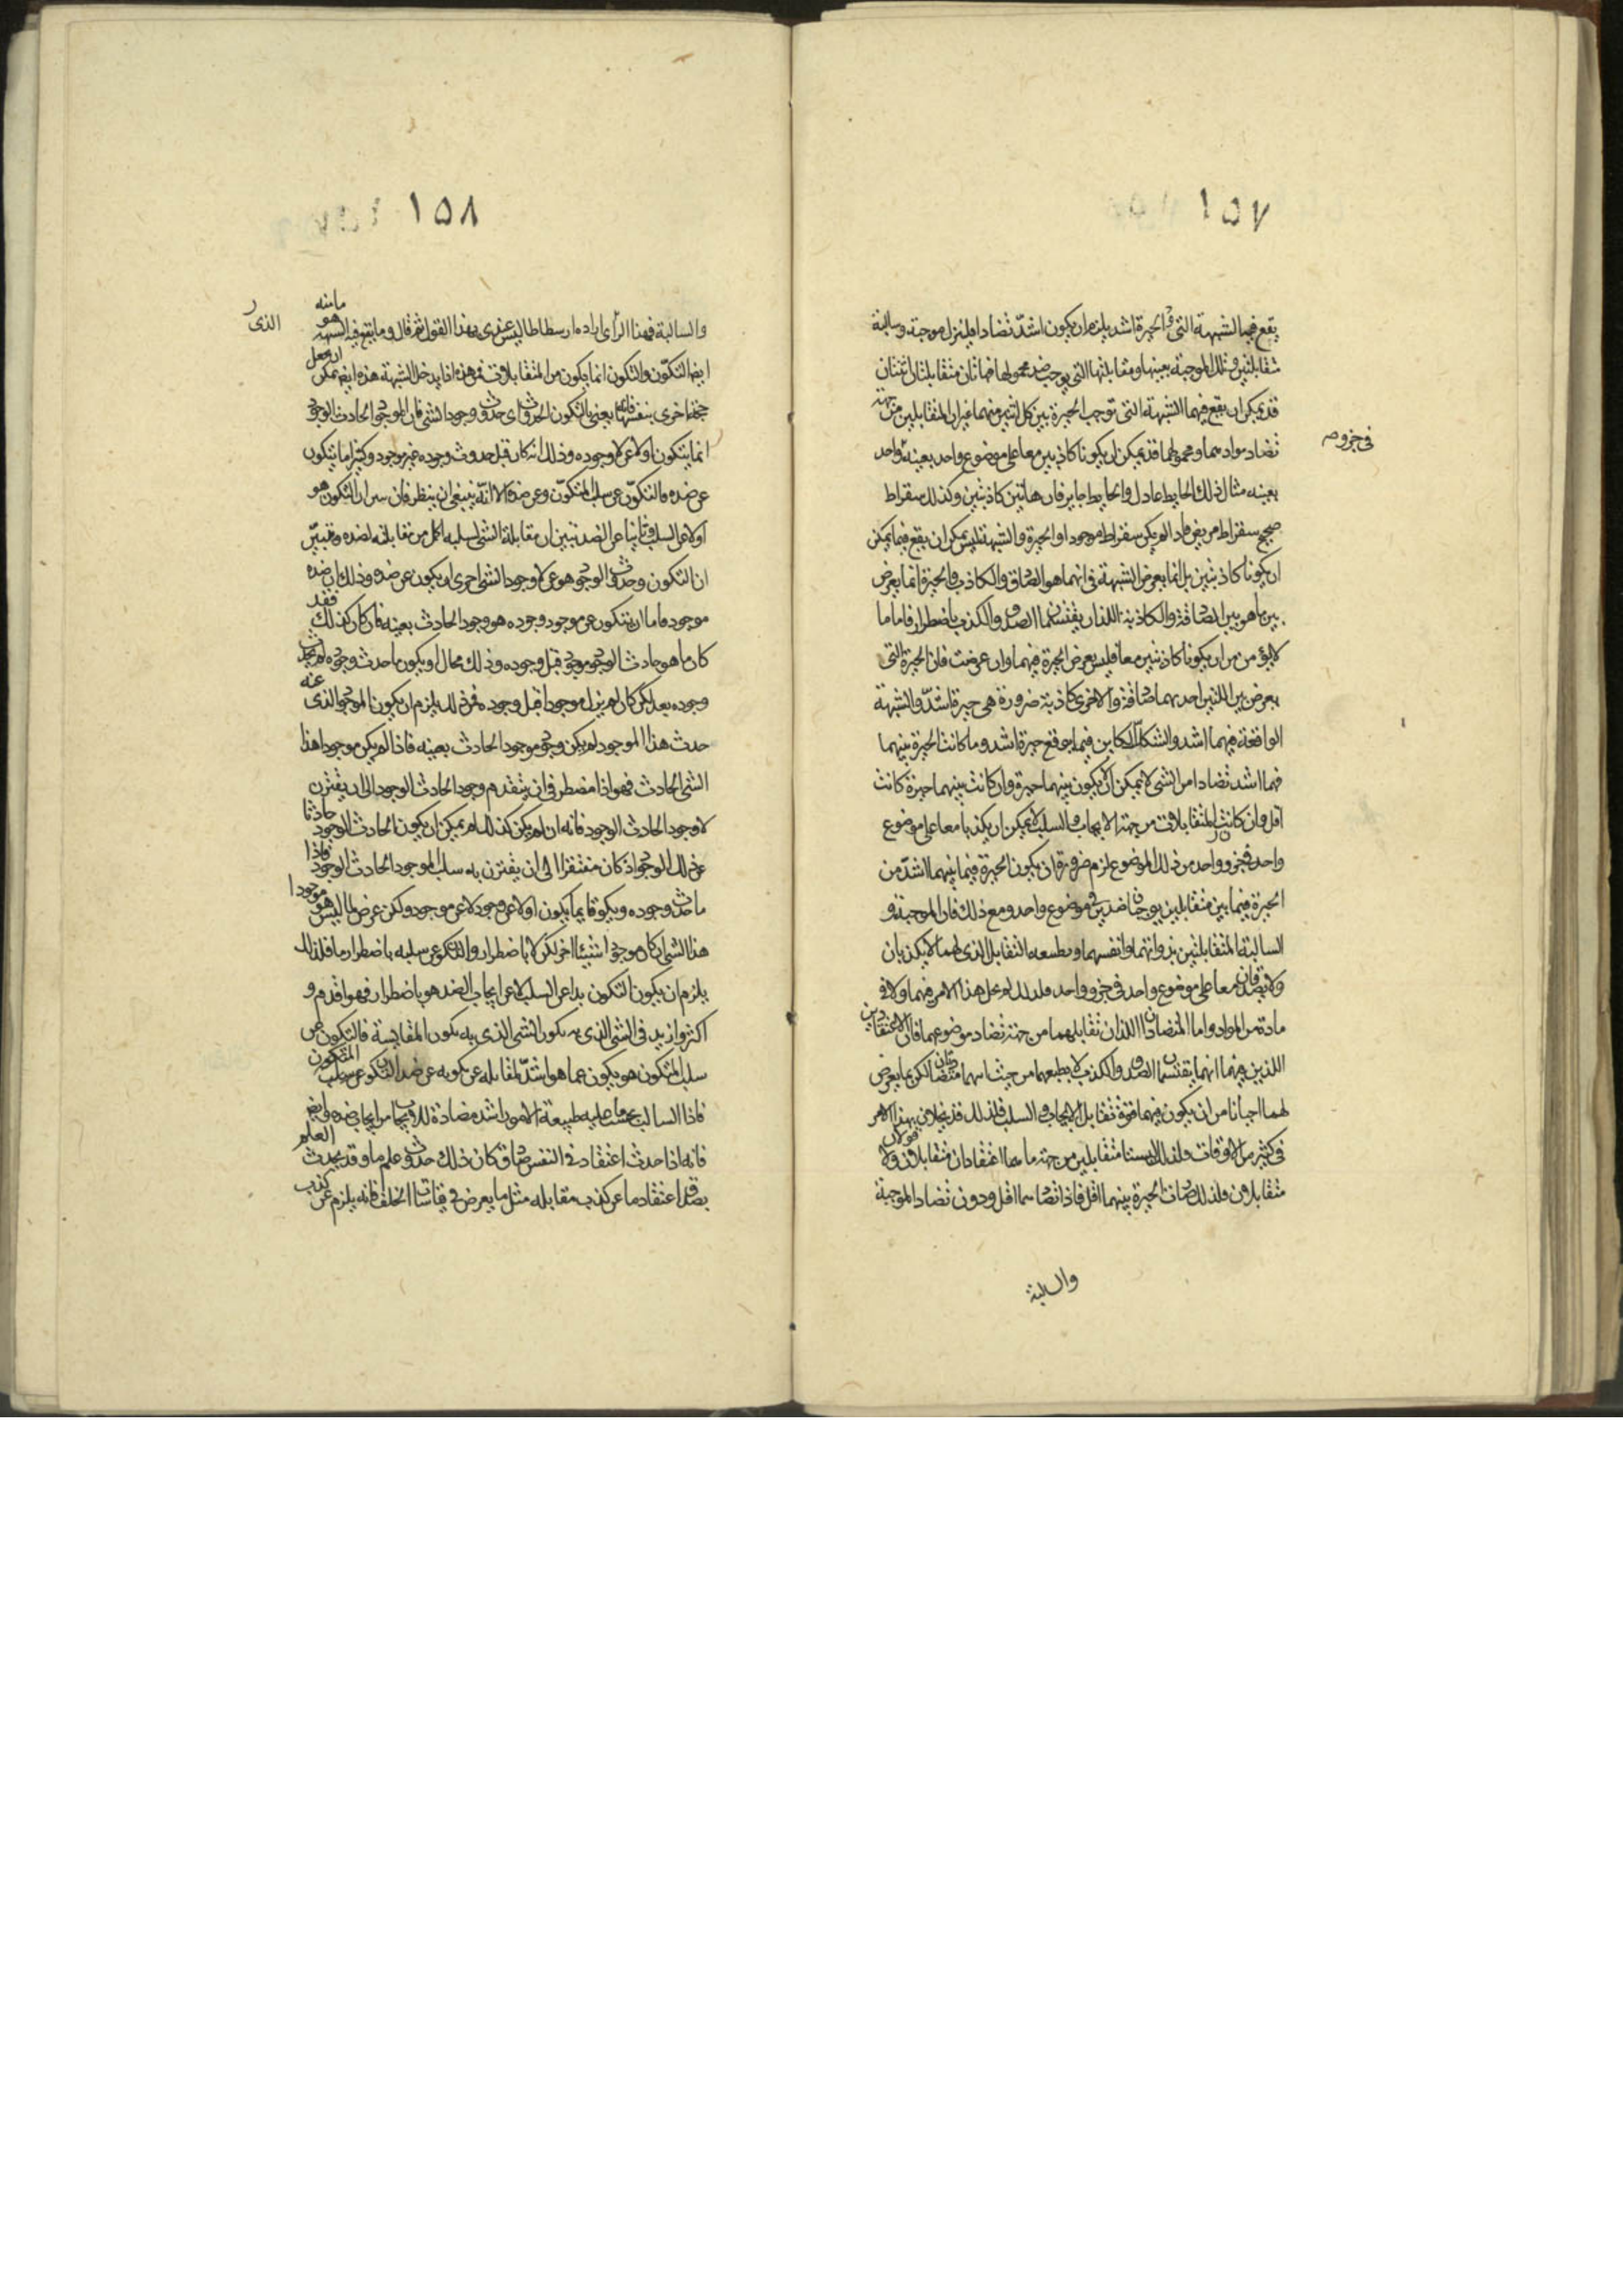 ١٥٧
يقع فيها الشبهة التى والحيرة اشد يلزم ان يكون اشدّ تضادا فلينزل موجبة وسالبة
متقابلتين وتلك الموجبة بعينها ومقابلتها التى يوجب ضد محمولها فهاتان متقابلتان اثنتان
قد يمكن ان يقع فيهما الشبهة التى توجب الحيرة بين كل اثنين منهما غير ان المتقابلين من جهة
تضاد مواد هما ومحمولهما قد يمكن ان يكونا كاذبين معا على موضوع واحد بعينه واحد
فى جزو
بعينه مثال ذلك الحايط عادل والحايط جاير فان هاتين كاذبتين وكذلك سقراط
صحيح سقراط مريض فاذا لم يكن سقراط موجودا والحيرة والشبهة ليس يمكن ان يقع فيما يمكن
ان يكونا كاذبتين بل انما يعرض الشبهة فى انهما هو الصادق والكاذب والحيرة انما يعرض
بين ما هو بين الصادقة والكاذبة اللذان يقتسمان الصدق والكذب باضطرار فاما ما
لا يؤمن من ان يكونا كاذبتين معا فليس يعرض الحيرة فيهما وان عرضت فان الحيرة التى
يعرض بين اللتين احديهما صادقة والاخرى كاذبة ضرورة هى حيرة اشدّ والشبهة
الواقعة فيهما اشد والشكان الكاين فيما يوقع حيرة اشد وما كانت الحيرة بينهما
فهما اشد تضادا من الشى لا يمكن ان يكون بينهما حيرة وان كانت بينهما حيرة كانت
اقل وان كانت المتقابلات من جهة الايجاب والسلب لا يمكن ان يكذبا معا على موضوع
واحد فى جزو واحد من ذلك الموضوع لزم ضرورة ان يكون الحيرة فيما بينهما اشدّ من
الحيرة فيما بين متقابلين يوجبان ضدين فى موضوع واحد ومع ذلك فان الموجبة و
السالبة المتقابلتين بذواتهما وانفسهما وبطبعه التقابل الذى لهما لا يكذبان
ولا يصدقان معا على موضوع واحد فى جزو واحد فلذلك لم يحل هذا الامر فيهما ولا فى
مادة من المواد واما المتضادان اللذان تقابلهما من جهة تضاد موضوعهما فان الاعتقادين
اللذين فيهما انهما يقتسمان الصدق والكذب لا بطبعهما من حيث هما متضادان لكن بما يعرض
لهما احيانا من ان يكون فيهما قوة تقابل الايجاب والسلب فلذلك قد يخلا من بهذا الامر
فى كثير من الاوقات ولذلك ليستا متقابلين من جهة ما هما اعتقادان متقابلان ولا قولان
متقابلان ولذلك صارت الحيرة بينهما اقل فاذا تضاد هما اقل ودون تضاد الموجبة
والسالبة
١٥٨
والسالبة فهذا الرأى اراده ارسطاطاليس عندى بهذا القول ثم قال وما يقع فيه الشبهة هو ما منه
الذى
ايضا التكوّن والتكون انما يكون من المتقابلات فمن هذه اذا يدخل الشبهة هذه ايضا يمكن ان يجعل
حجة اخرى بنفسها قائمة يعنى بالتكون الحدوث اى حدوث وجود الشى فان الموجود الحادث الوجود
انما يتكون اولا عن لا وجوده وذلك انه كان قبل حدوث وجوده غير موجود وكثيرا ما يتكون
عن ضده فالتكوّن عن سلب المتكوّن وعن ضده الا انّه ينبغى ان ينظر فان سر ان التكون هو
اولا عن السلب وثانيا عن الضد تبين ان مقابلة الشى لسلبه اكمل من مقابلته لضده ونتبيّن
ان التكون وحدوث الوجود هو عن لا وجود الشى احرى ان يكون عن ضده وذلك ان ضده
موجود فاما ان يتكون عن موجود وجوده هو وجود الحادث بعينه فان كان كذلك فقد
كان ما هو حادث الوجود موجود قبل وجوده وذلك محال او يكون ما حدث وجوده لم يحدث
وجوده بعد لكن كان لم يزل موجودا قبل وجوده فمن ذلك يلزم ان يكون الموجود الذى عنه
حدث هذا الموجود لم يكن وجوده موجود الحادث بعينه فاذا لم يكن موجودا هذا
الشى الحادث فهو اذا مضطر فى ان يتقدم وجود الحادث الوجود الى ان يقترن
لا وجود الحادث الوجود فانه ان لم يكن كذلك لم يمكن ان يكون الحادث الوجود حادثا
عن ذلك الموجود اذ كان مفتقرا الى ان يقترن به سلب الموجود الحادث الوجود فاذا
ما حدث وجوده ويكون قايما يكون اولا عن وجود لا عن موجود ولكن عرض لما ليس هو موجودا
هذا الشى ان كان موجودا شيئا اخر لكن لا باضطرار والتكون عن سلبه باضطرار ما فلذلك
يلزم ان يكون التكون بدا عن السلب لا عن ايجاب الضد هو باضطرار فهو اقدم و
اكثر وازيد فى الشى الذى به يكون الشى الذى به يكون المقايسة فالتكون عن
سلب المتكون هو يكون عما هو اشدّ مقابلة عن كونه عن ضد المتكون عن سلب
فاذا السالب بحسب ما عليه طبيعة الامور اشد مضادة للايجاب من ايجاب ضده وايضا
فانه اذا حدث اعتقاد فى النفس صادق كان ذلك حدوث علم ما وقد يحدث العلم
بصدق اعتقاد ما عن كذب مقابله مثل ما يعرض فى قياسات الخلف فانه يلزم عن كذب